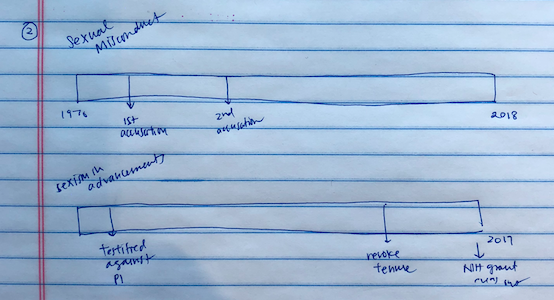 ②
Sexual
Misconduct
1st
accusation
2nd
accusation
2018
sexism in
advancement
testified
against
PI
revoke
tenure
2017
NIH grant
runs out